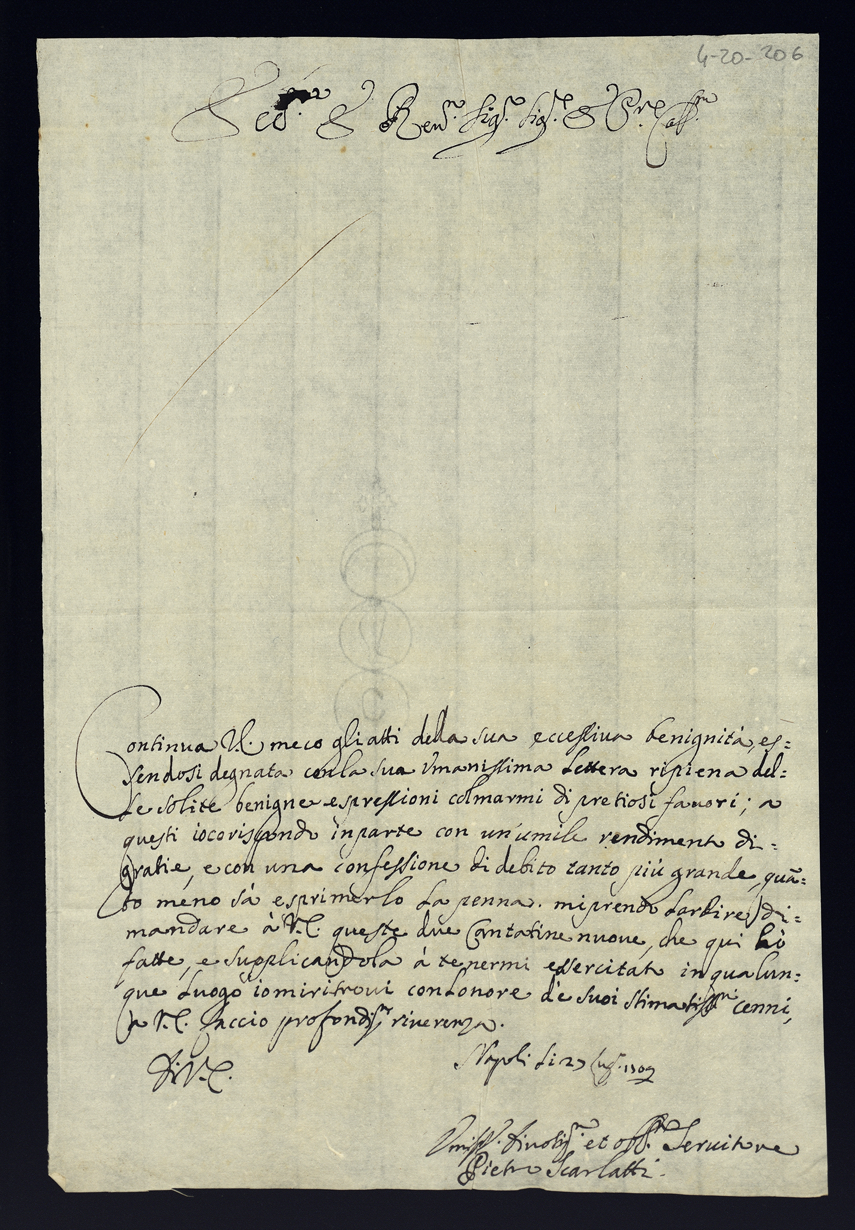 4-20-206
Ecc.mo e Rev.mo Sig.e Sig.e e
Continua V.E. meco gli atti della sua eccessiva benignità, es=
sendosi degnata con la sua Umanissima Lettera ripiena del=
le solite benigne espressioni colmarmi di pretiosi favori; a
questi io corispondo in parte con un'umile rendimento di=
gratie, e con una confessione di debito tanto più grande, quã=
to meno sà esprimerlo la penna. mi prendo l'ardire di=
mandare à V.E. queste due Cantatine nuove, che qui hò
fatte, e supplicandola à tenermi essercitato in qualun=
que luogo io mi ritrovi con l'onore de suoi stimatiss.mi cenni,
à V.E. faccio profondis.ma riverenza.
Di V.E.
Napoli li 27
Umiliss.o Divotis.o et obb.mo Servitore
Pietro Scarlatti